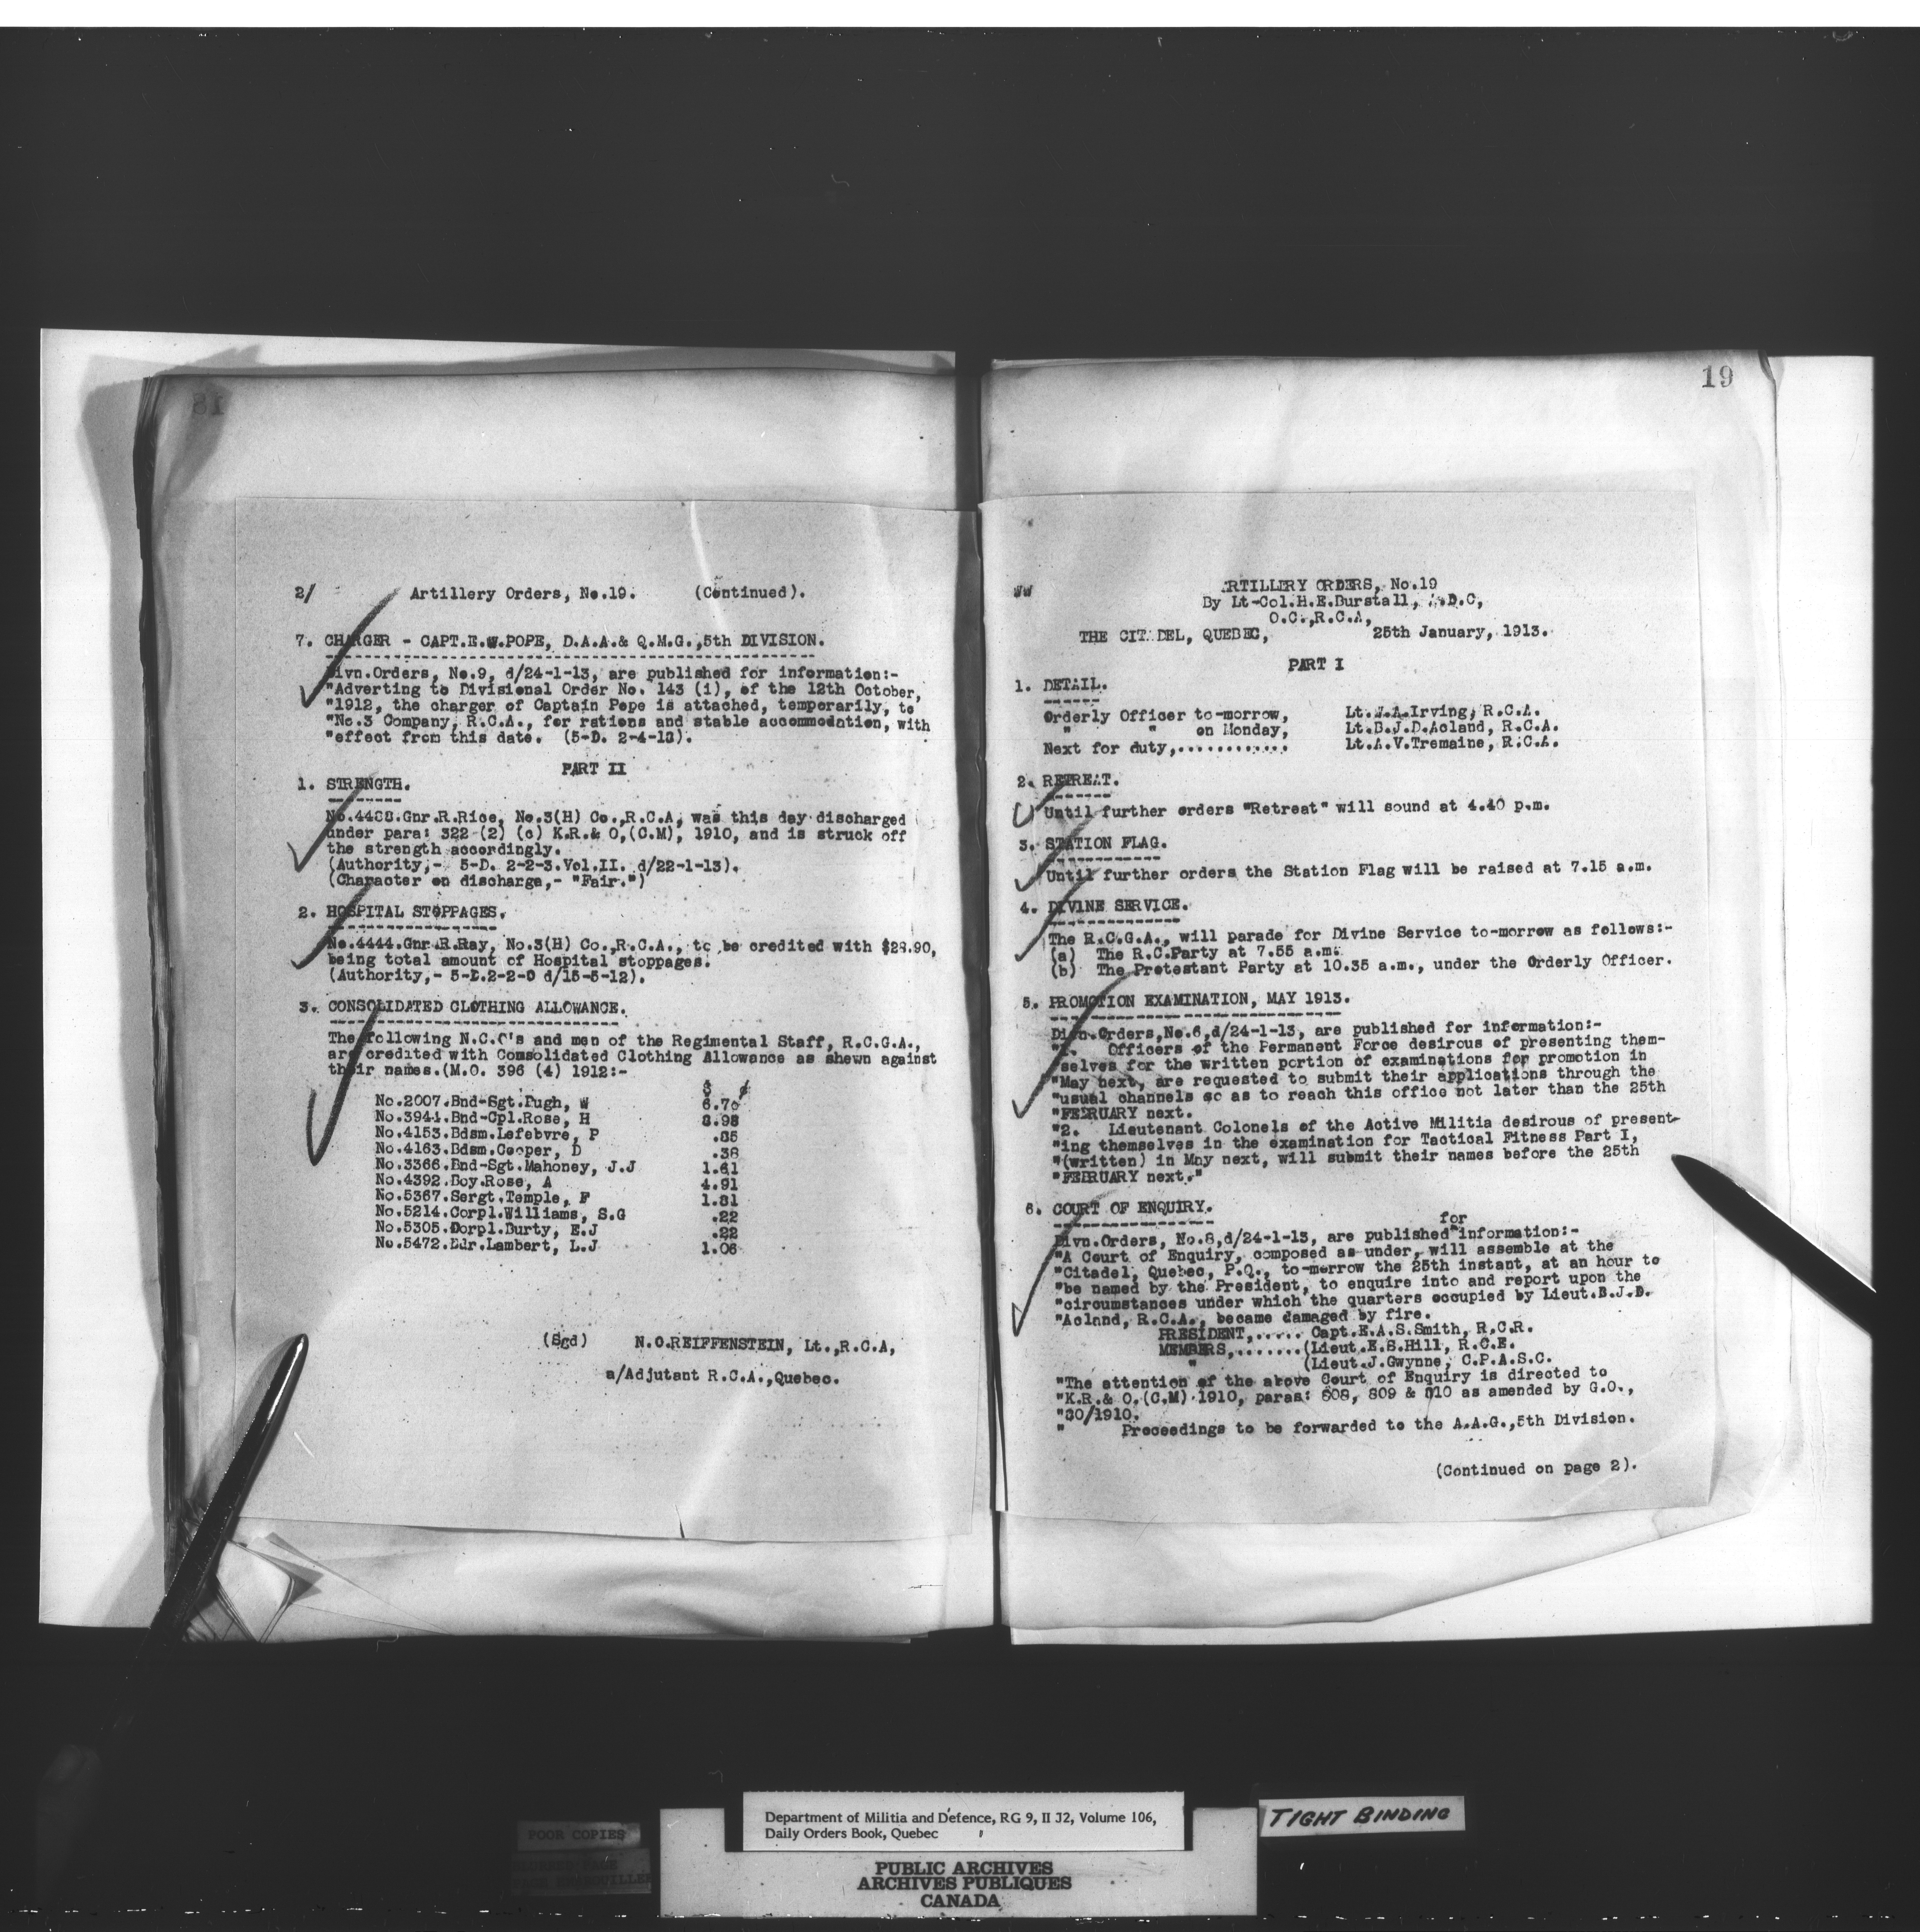 2/ Artillery Orders, No.19. (Continued).
7. CHARGER - CAPT.E.W.POPE, D.A.A.& Q.M.G.,5th DIVISION.
Divn.Orders, No.9, d/24-1-13, are published for information:-
"Adverting to Divisional Order No. 143 (1), of the 12th October,
"1912, the charger of Captain Pope is attached, temporarily, to
"No.3 Company, R.C.A., for rations and stable accommodation, with
"effect from this date. (5-D. 2-4-13).
PART II
1. STRENGTH.
Gnr.R.Rice, No.3(H) Co.,R.C.A, was this day discharged
under para: 322 (2) (c) K.R.& O,(C.M), 1910, and is struck off
the strength accordingly.
(Authority,- 5-D. 2-2-3.Vol.II. d/22-1-13).
(Character on discharge,- "Fair.")
2. HOSPITAL STOPPAGES.
No.4444.Gnr.R.Ray, No.3(H) Co.,R.C.A., to be credited with
being total amount of Hospital stoppages.
(Authority,- 5-D.2-2-0 d/15-5-12).
3. CONSOLIDATED CLOTHING ALLOWANCE.
The following N.C.O's and men of the Regimental Staff, R.C.G.A.,
are credited with Consolidated Clothing Allowance as shewn against
their names.(M.O. 396 (4) 1912:-
$ ¢
No.2007.Bnd-Sgt.Pugh, W 6.70
No.3941.Bnd-Cpl.Rose, H
No.4153.Bdsm.Lefebvre, P
No.4163.Bdsm.Cooper, D
No.3366.Bnd-Sgt.Mahoney, J.J 1.61
No.4392.Boy.Rose, A 4.91
No.5367.Sergt.Temple, F
No.5214.Corpl.Williams, S.G .22
No.5305.Corpl.Durty, E.J .22
No.5472.Bdr.Lambert, L.J 1.06
(Sgd) N.C.REIFFENSTEIN, Lt.,R.C.A,
a/Adjutant R.C.A.,Quebec.
19
ARTILLERY ORDERS, No.19
By Lt-Col.H.E.Burstall, A.D.C,
O.C.,R.C.A,
THE CITADEL, QUEBEC, 25th January, 1913.
PART I
1. DETAIL.
Orderly Officer to-morrow, Lt.W.A.Irving, R.C.A.
" " on Monday, Lt.B.J.D.Acland, R.C.A.
Next for duty,............ Lt.A.V.Tremaine, R.C.A.
2. RETREAT.
Until further orders "Retreat" will sound at 4.40 p.m.
3. STATION FLAG.
Until further orders the Station Flag will be raised at 7.15 a.m.
4. DIVINE SERVICE.
The R.C.G.A., will parade for Divine Service to-morrow as follows:-
(a) The R.C.Party at 7.55 a.m.
(b) The Protestant Party at 10.35 a.m., under the Orderly Officer.
5. PROMOTION EXAMINATION, MAY 1913.
Divn.Orders,No.6,d/24-1-13, are published for information:-
"1. Officers of the Permanent Force desirous of presenting them-
"selves for the written portion of examinations for promotion in
"May next, are requested to submit their applications through the
"usual channels so as to reach this office not later than the 25th
"FEBRUARY next.
"2. Lieutenant Colonels of the Active Militia desirous of present-
"ing themselves in the examination for Tactical Fitness Part I,
"(written) in May next, will submit their names before the 25th
"FEBRUARY next."
6. COURT OF ENQUIRY.
for
Divn.Orders, No.8,d/24-1-13, are published^information:-
"A Court of Enquiry, composed as under, will assemble at the
"Citadel, Quebec, P.Q., to-morrow the 25th instant, at an hour to
"be named by the President, to enquire into and report upon the
"circumstances under which the quarters occupied by Lieut.B.J.D.
"Acland, R.C.A., became damaged by fire.
PRESIDENT,..... Capt.E.A.S.Smith, R.C.R.
MEMBERS,.......(Lieut.E.S.Hill, R.C.E.
" (Lieut.J.Gwynne, C.P.A.S.C.
"The attention of the above Court of Enquiry is directed to
"K.R.& O.(C.M) 1910, paras: 808, 809 & 810 as amended by G.O.,
"30/1910.
" Proceedings to be forwarded to the A.A.G.,5th Division.
(Continued on page 2).
POOR COPIES
Department of Militia and Defence, RG 9, II J2, Volume 106,
Daily Orders Book, Quebec
PUBLIC ARCHIVES
ARCHIVES PUBLIQUES
CANADA
TIGHT BINDING